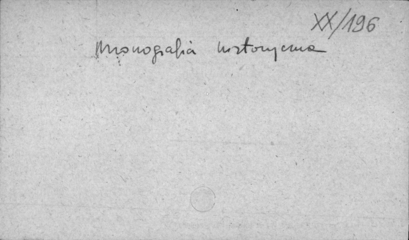 XX/196
Monografia historyczna